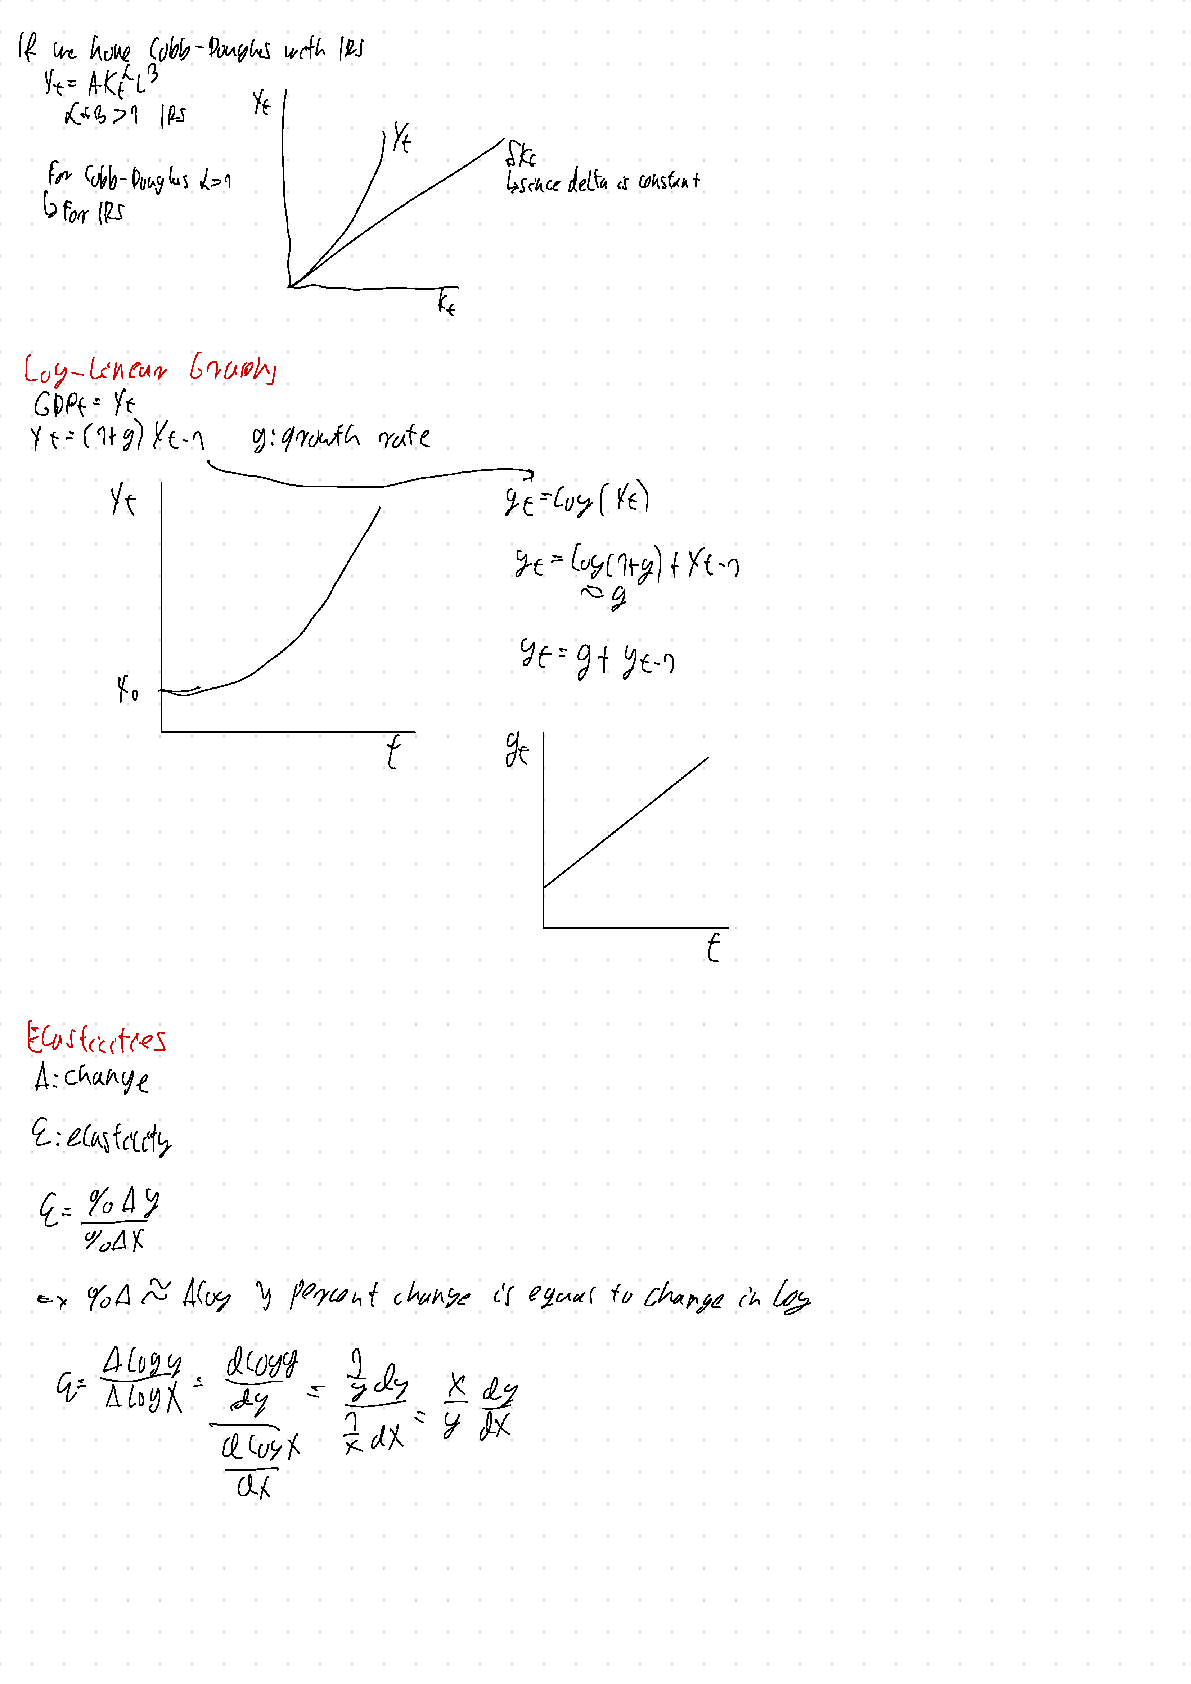 If we have Cobb-Douglas with IRS
Yt = AKt^α L^β
α+β>1 IRS
Yt
Yt
δKt
↳since delta is constant
Kt
For Cobb-Douglas α>1
↳For IRS
Log-Linear Graphs
GDPt = Yt
Yt = (1+g) Yt-1 g: growth rate
Yt
Y0
t
yt = Log(Yt)
yt = Log(1+g) + Yt-1
≈ g
yt = g + yt-1
yt
t
Elasticities
Δ: change
ε: elasticity
ε = %Δy / %Δx
=> %Δ ≈ Δlog y percent change is equal to change in log
ε = Δlogy / Δlogx = (dlogy / dy) / (dlogx / dx) = (1/y dy) / (1/x dx) = x/y dy/dx